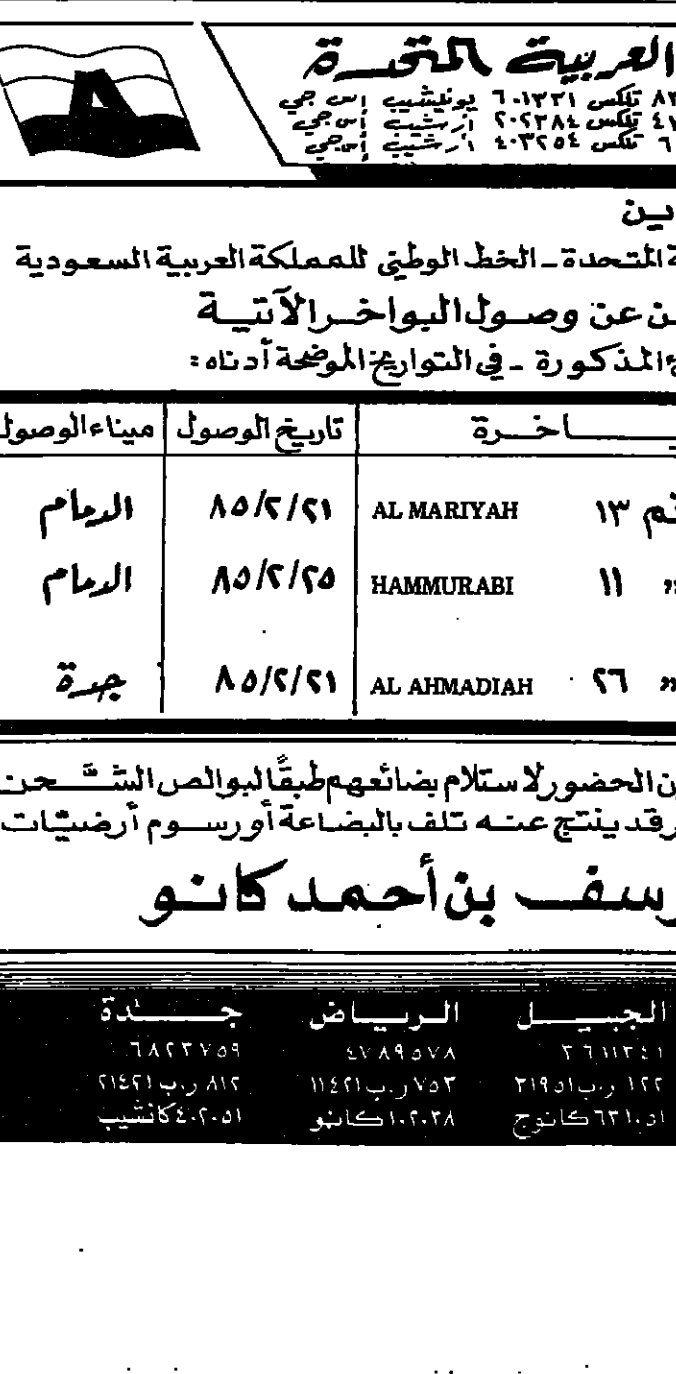 العربية المتحدة
تلكس ٦٠١٣٢١ يونيشيب إس جي
تلكس ٢٠٢٣٨٤ أرشيب أس جي
تلكس ٤٠٣٢٥٤ أرشيب إس جي
المتحدة - الخط الوطني للمملكة العربية السعودية
عن وصول البواخر الآتية
المذكورة - في التواريخ الموضحة أدناه:
اخرة تاريخ الوصول ميناء الوصول
١٣ AL MARIYAH ٨٥/٢/٢١ الدمام
" ١١ HAMMURABI ٨٥/٢/٢٥ الدمام
" ٢٦ AL AHMADIAH ٨٥/٢/٢١ جدة
الحضور لاستلام بضائعهم طبقًا لبوالص الشَّحن
قد ينتج عنه تلف بالبضاعة أو رسوم أرضيّات
سف بن أحمد كانو
الجبيل الرياض جدة
٣٦١١٣٤١ ٤٧٨٩٥٧٨ ٦٨٢٣٧٥٩
١٢٢ ر.ب ٣١٩٥١ ٧٥٣ ر.ب ١١٤٢١ ٨١٢ ر.ب ٢١٤٢١
٦٣١٠٥١ كانوج ١٠٢٠٣٨ كانو ٤٠٢٠٥١ كانشيب